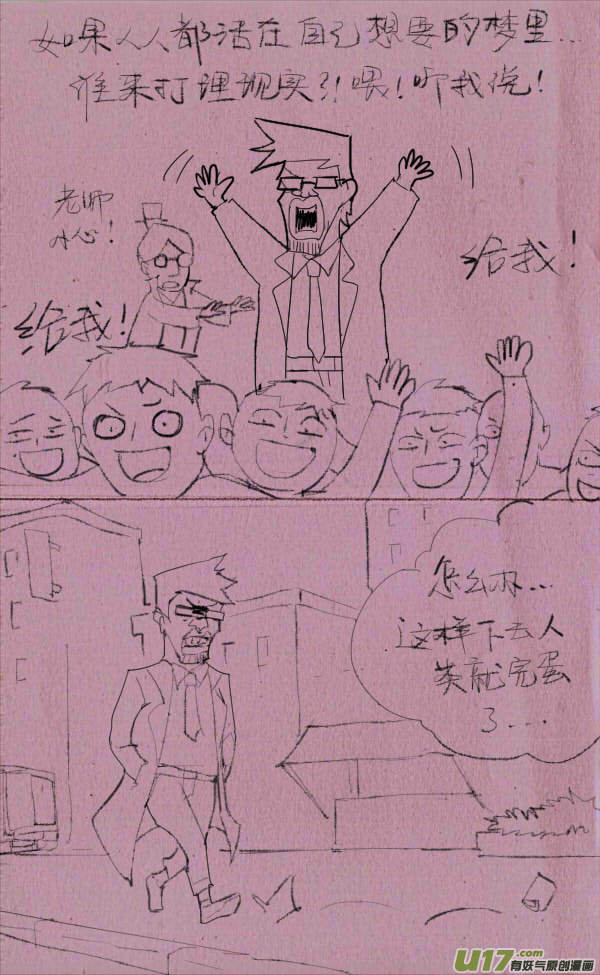 如果人人都活在自己想要的梦里...
谁来打理现实?!喂!听我说!
老师
小心!
给我!
给我!
怎么办...
这样下去人
类就完蛋
了....
U17.com
有妖气原创漫画